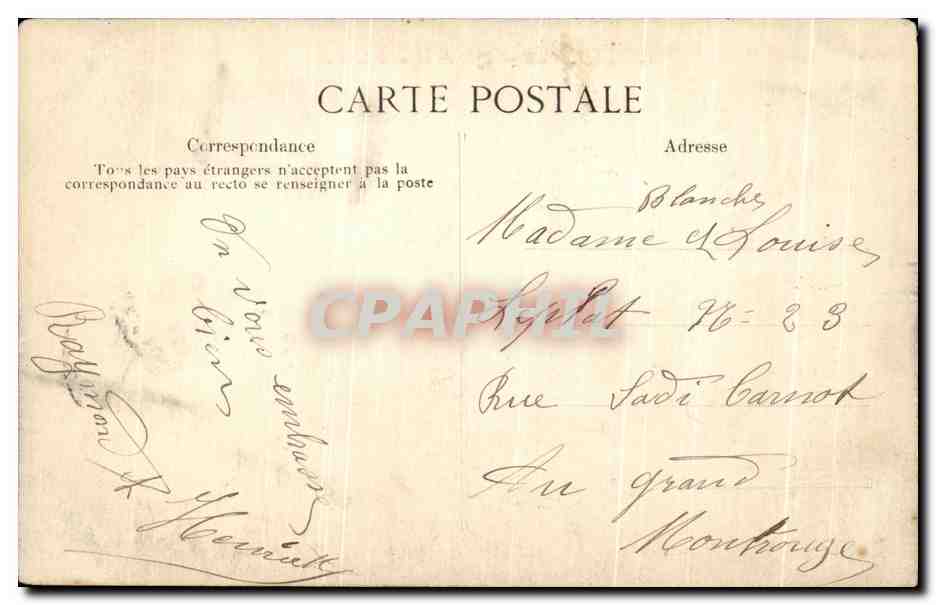 CARTE POSTALE
Correspondance
Tous les pays étrangers n'acceptent pas la
correspondance au recto se renseigner à la poste
On vous embrasse
bien
Raymond &
Henriett
Adresse
Blanche
Madame & Louise
Leplat N= 23
Rue Sadi Carnot
Au grand
Montrouge
CPAPHIL